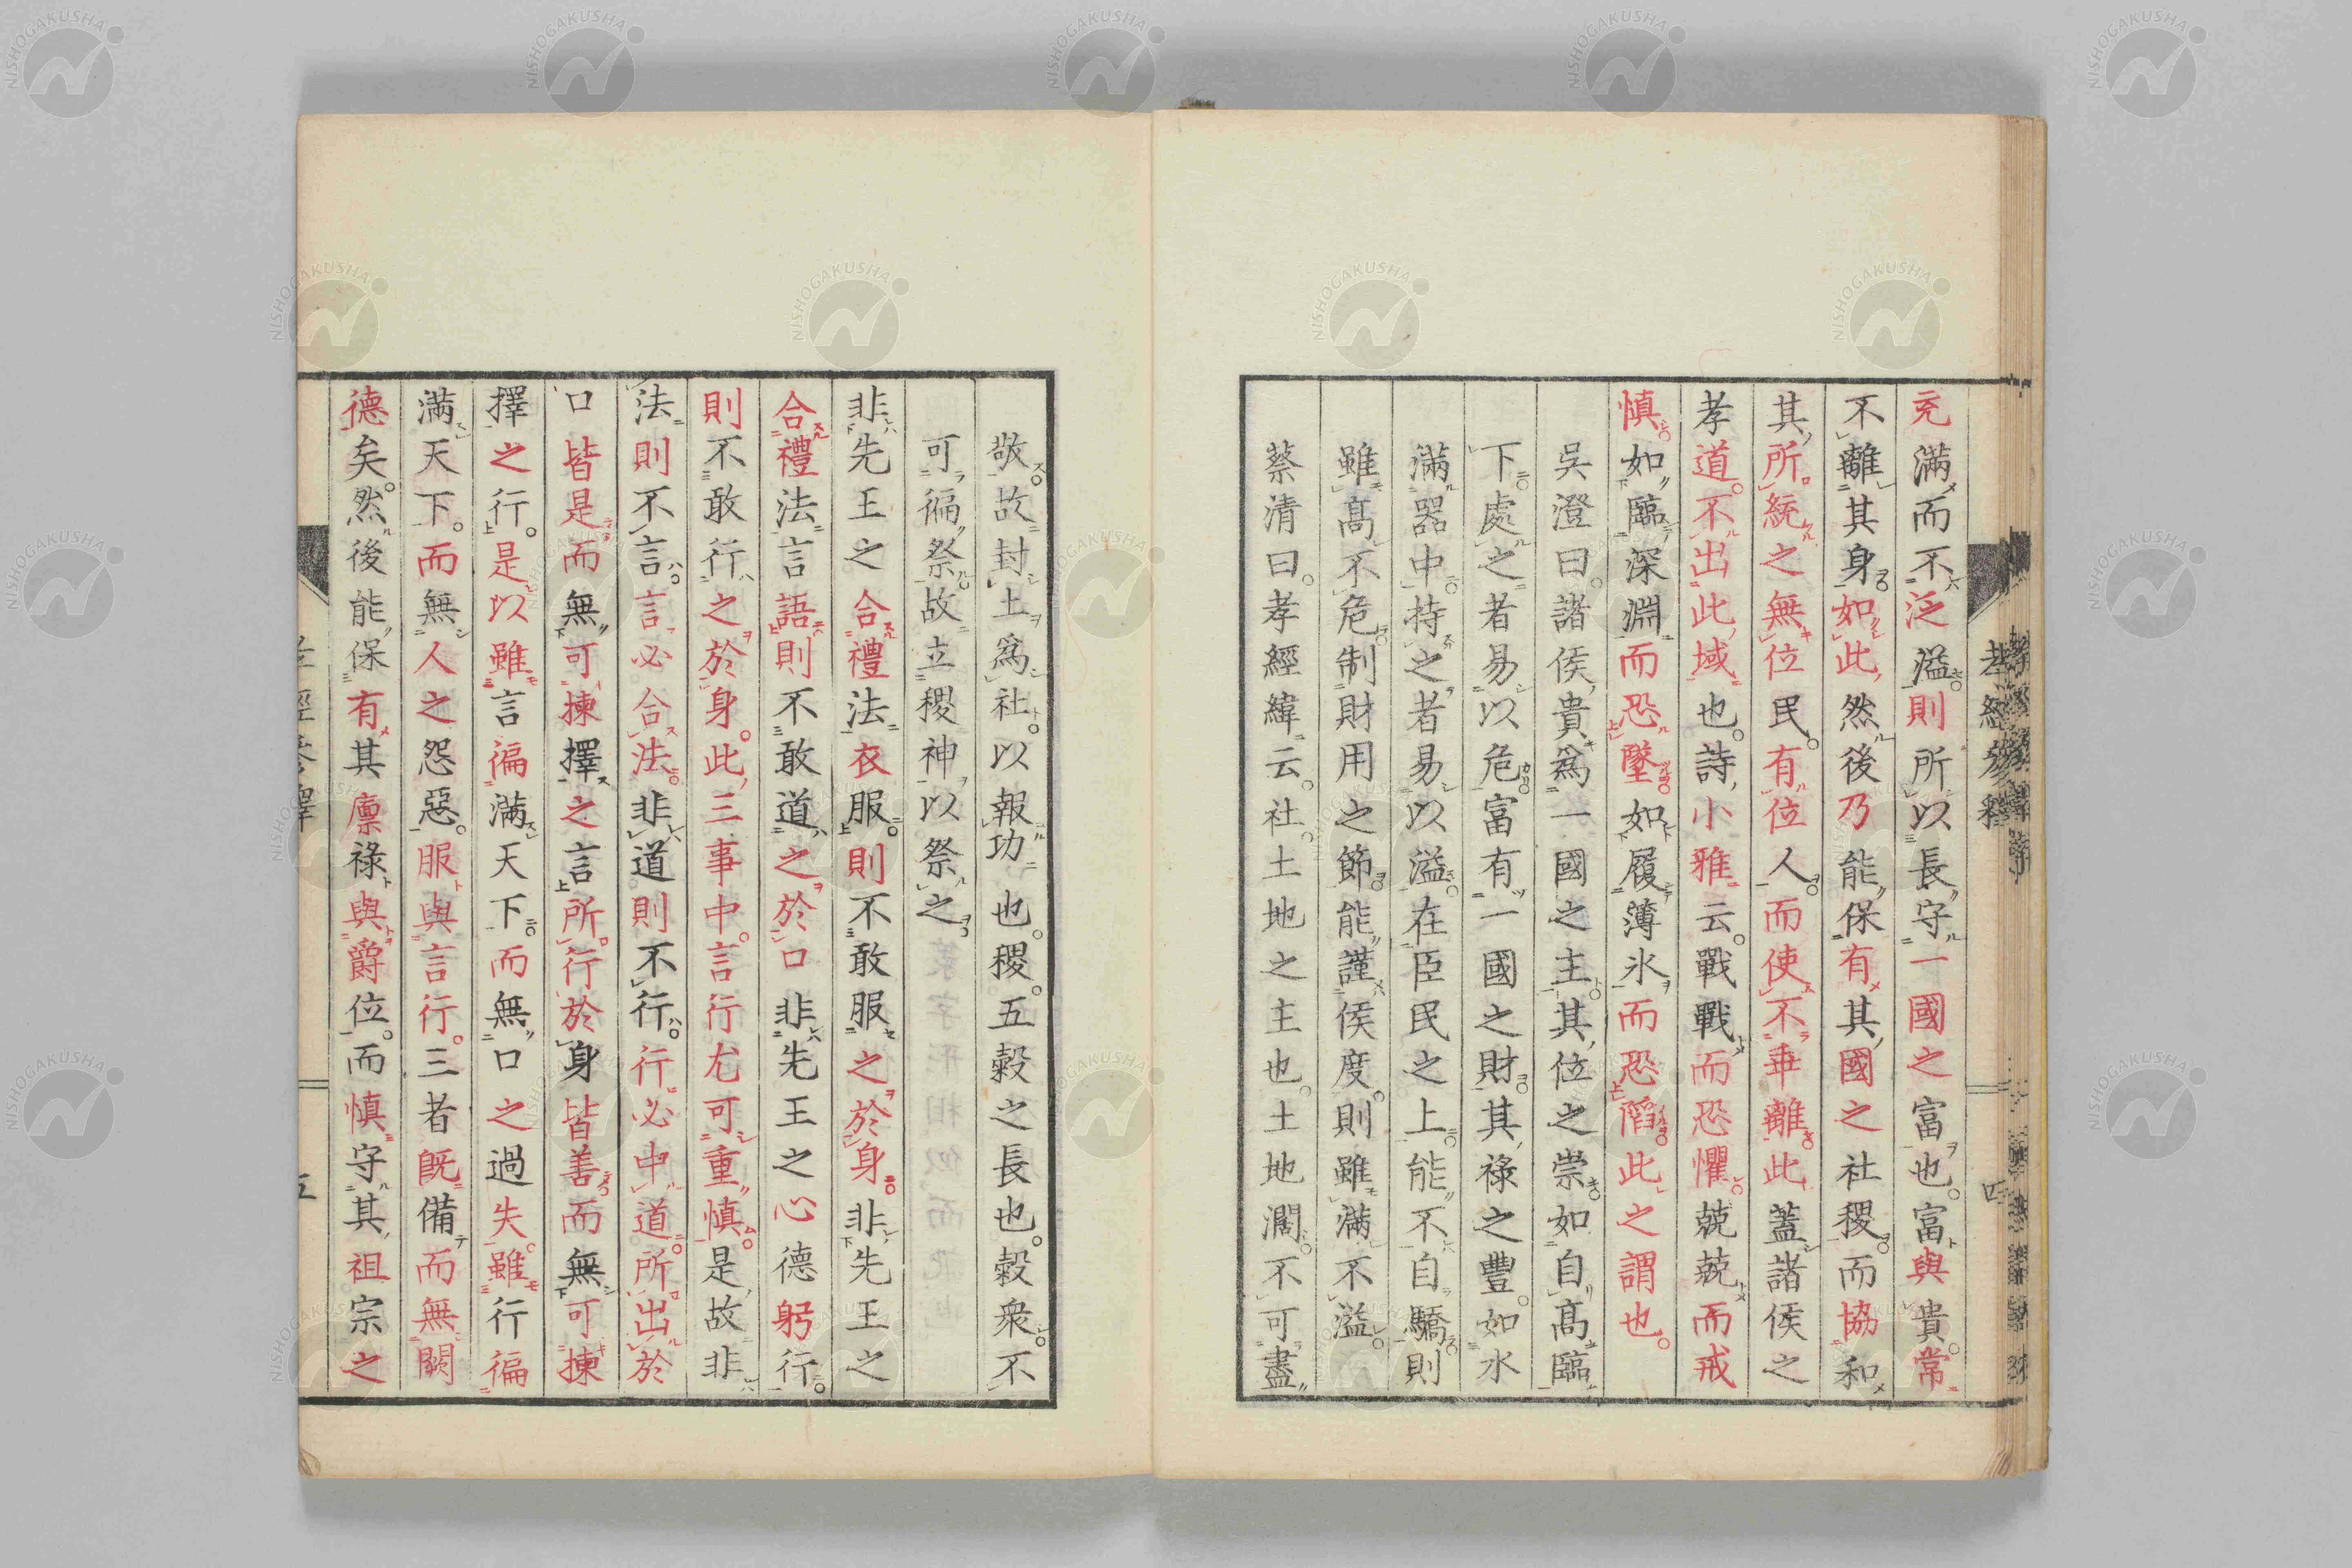 充滿而不泛溢則所以長守一國之富也富與貴常
不離其身如此然後乃能保有其國之社稷而協和
其所統之無位民有位人而使不乖離此蓋諸侯之
孝道不出此域也詩小雅云戰戰而恐懼兢兢而戒
慎如臨深淵而恐墜如履薄氷而恐陷此之謂也
吳澄曰諸侯貴爲一國之主其位之崇如自高臨
下處之者易以危富有一國之財其祿之豐如水
滿器中持之者易以溢在臣民之上能不自驕則
雖高不危制財用之節能謹侯度則雖滿不溢
蔡清曰孝經緯云社土地之主也土地濶不可盡
敬故封土爲社以報功也稷五穀之長也穀衆不
可徧祭故立稷神以祭之
非先王之合禮法衣服則不敢服之於身非先王之
合禮法言語則不敢道之於口非先王之心德躬行
則不敢行之於身此三事中言行尤可重慎是故非
法則不言言必合法非道則不行行必中道所出於
口皆是而無可揀擇之言所行於身皆善而無可揀
擇之行是以雖言徧滿天下而無口之過失雖行徧
滿天下而無人之怨惡服與言行三者旣備而無闕
德矣然後能保有其廩祿與爵位而慎守其祖宗之
五